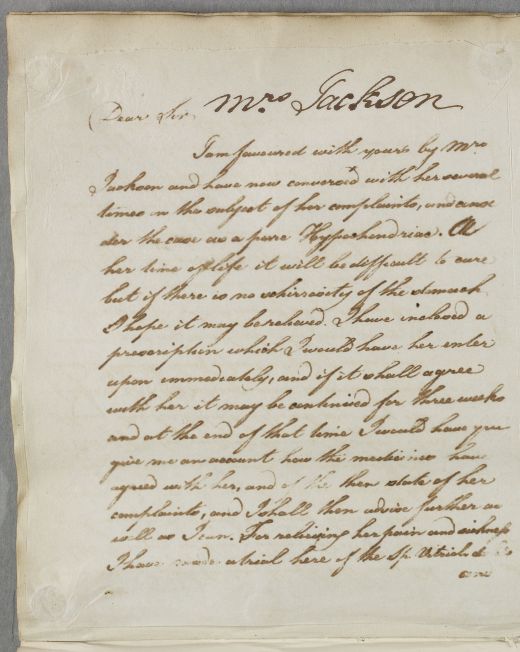 Mrs Jackson
Dear Sir
I am favoured with yours by Mrs
Jackson and have now conversed with her several
times on the subject of her complaints, and consi
der the case as a pure Hypochondriac. At
her time of life it will be difficult to cure
but if there is no schirrosity of the stomach
I hope it may be relieved. I have inclosed a
prescription which I would have her enter
upon immediately, and if it shall agree
with her it may be continued for three weeks
and at the end of that time I would have you
give me an account how the medicines have
agreed with her, and of the then state of her
complaints, and I shall then advise further as
well as I can. For relieving her pain and sickness
I have made a trial here of the Sp. Vitriol. d